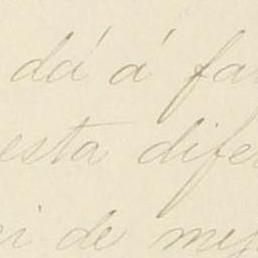 dá á fa
esta dife
ei de me